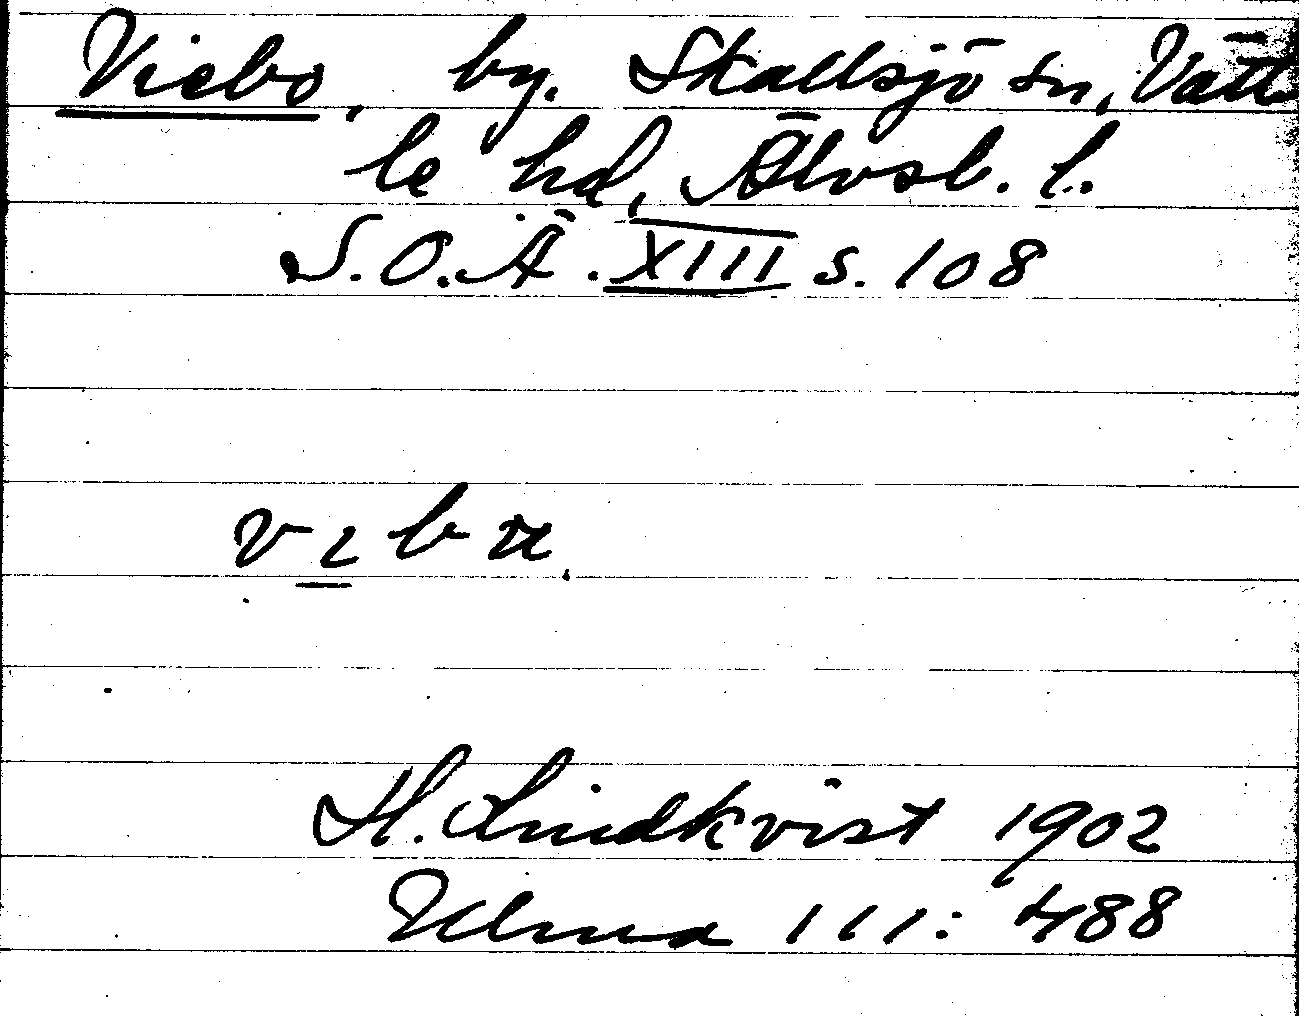 Viebo, by. Skallsjö sn, Vätt
le hd, Älvsb. l.
S.O.Ä. XIII s. 108
v ɩ b
H. Lindkvist 1902
Ulma 111: 488